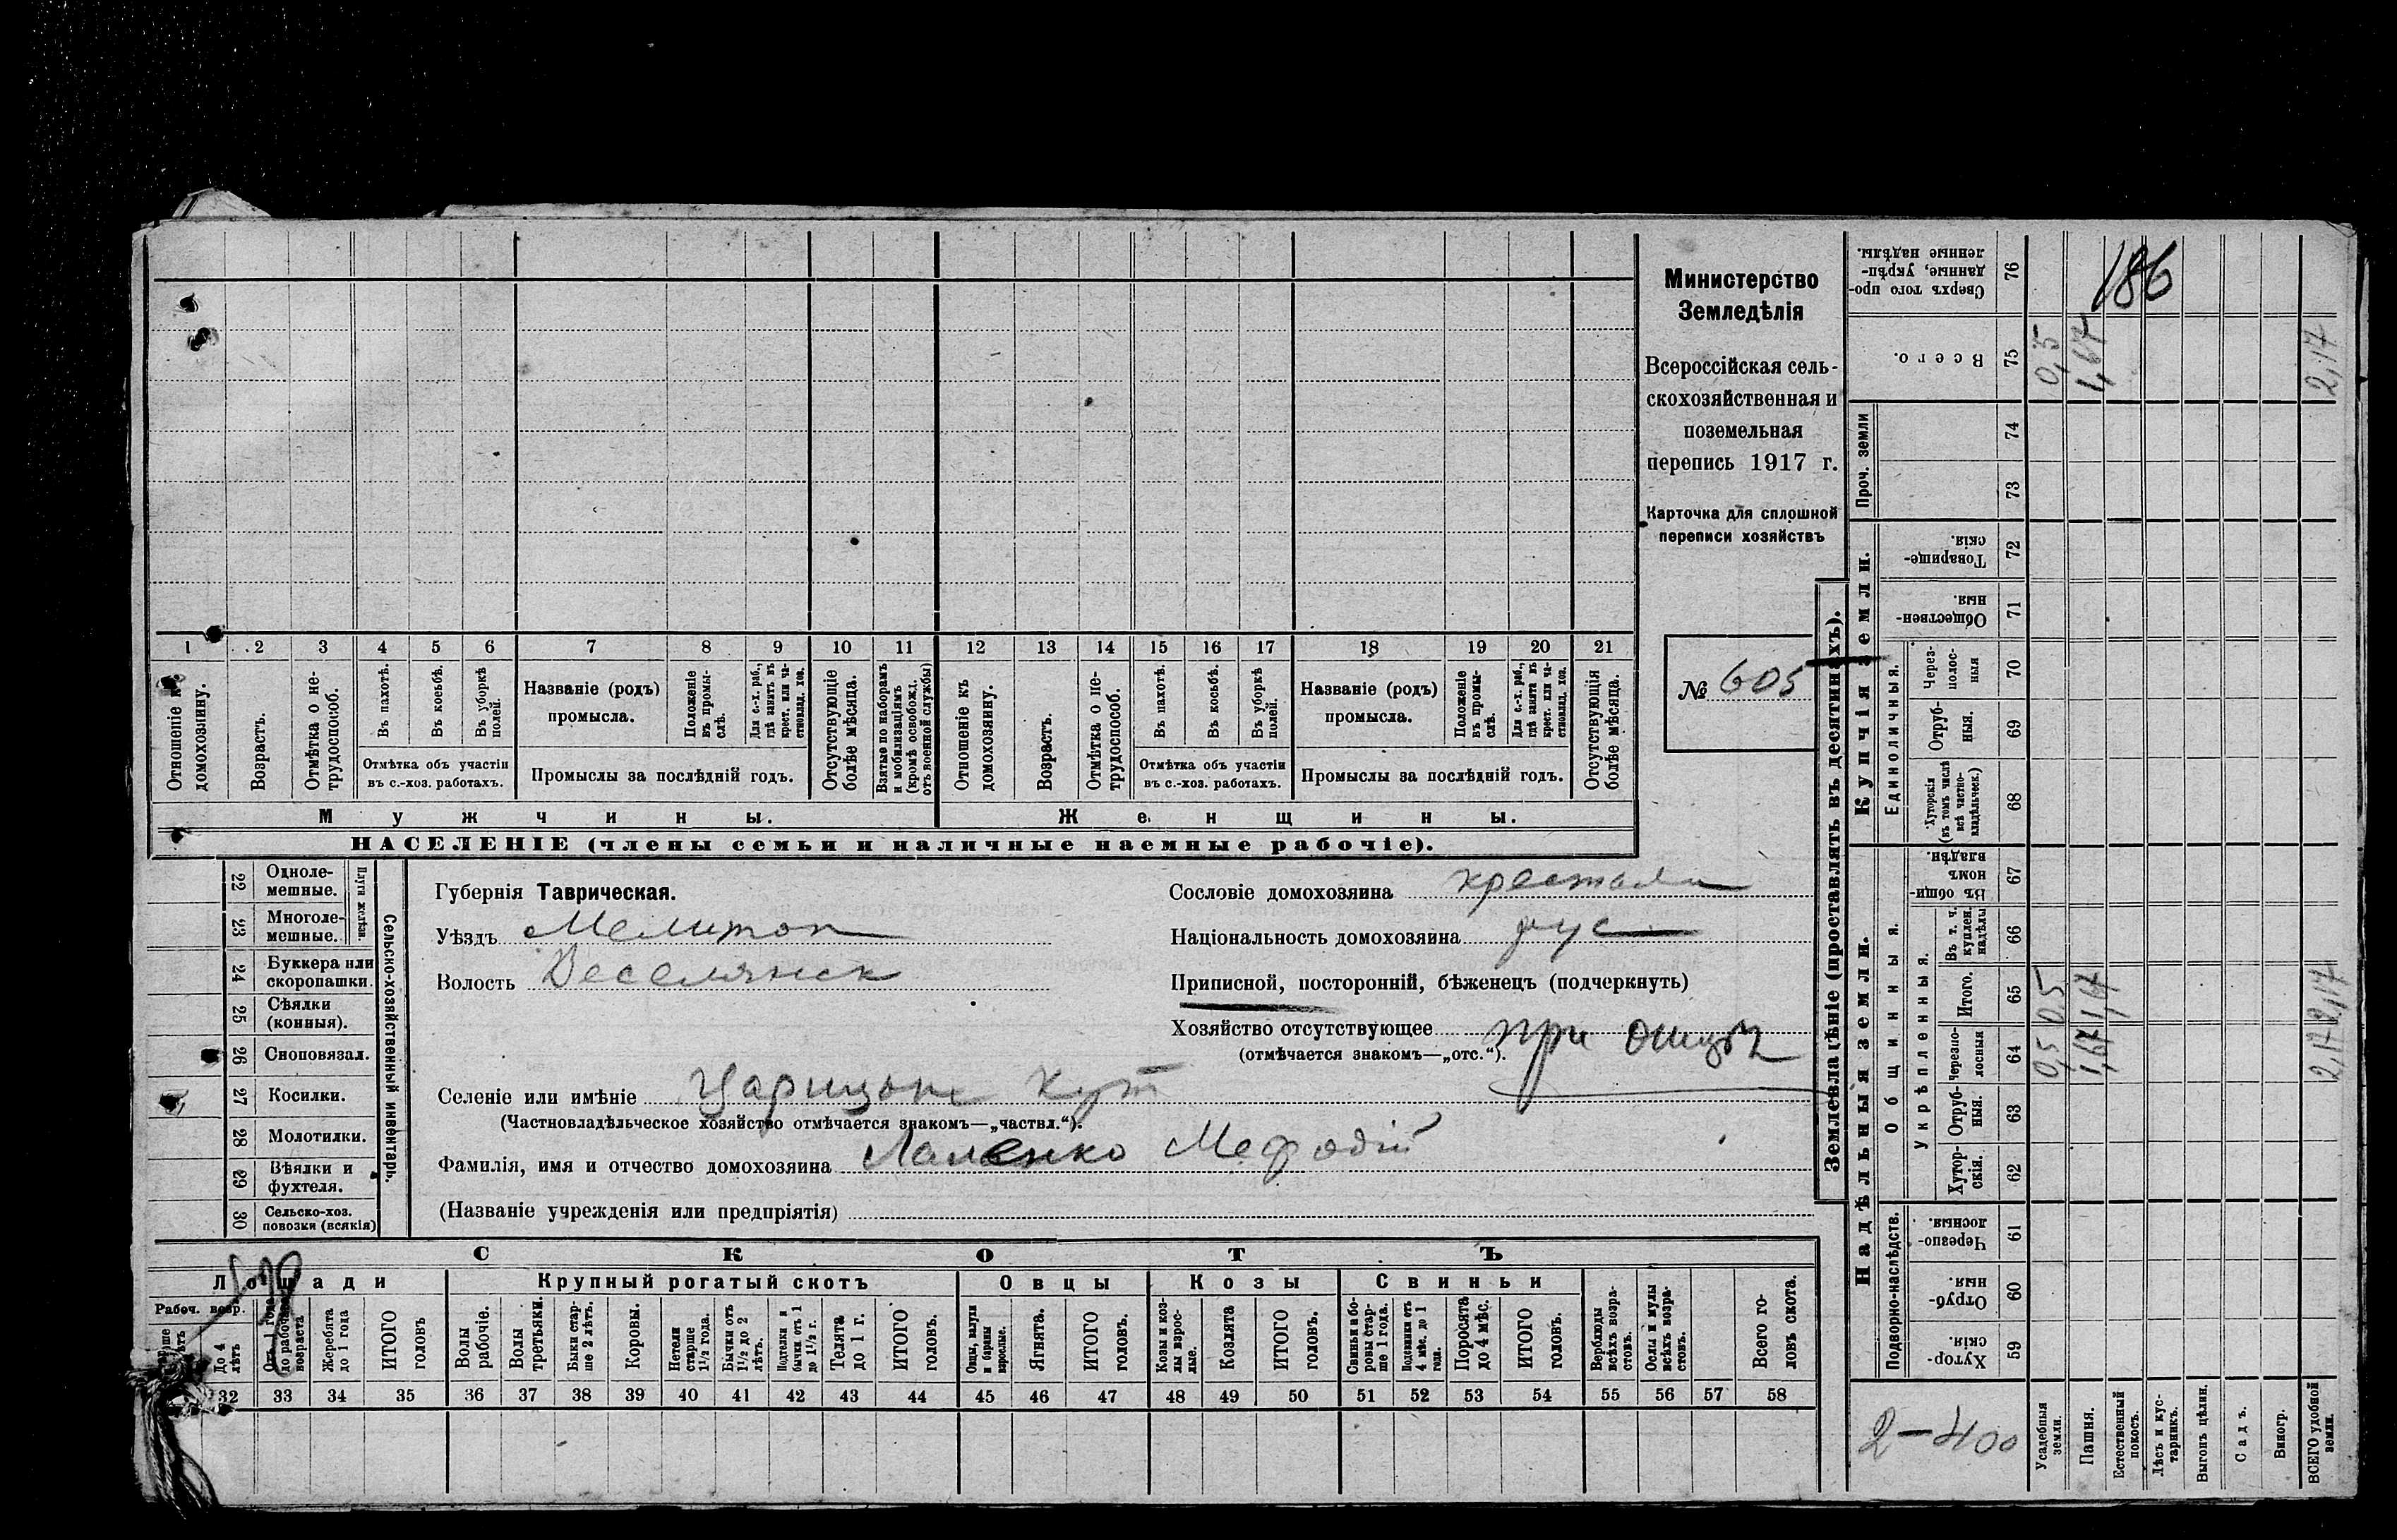 1 2 3 4 5 6 7 8 9 10 11 12 13 14 15 16 17 18 19 20 21
Отношеніе къ домохозяину.
Возрастъ.
Отмѣтка о нетрудоспособ.
Въ пахотѣ.
Въ косьбѣ.
Въ уборкѣ полей.
Отмѣтка объ участіи
въ с.-хоз. работахъ.
Названіе (родъ)
промысла.
Положеніе въ промыслѣ.
Для с.-х. раб., гдѣ занятъ въ крест. или частновлад. хоз.
Промыслы за послѣдній годъ.
Отсутствующіе болѣе мѣсяца.
Взятые по наборамъ и мобилизаціямъ (кромѣ освобожд. отъ военной службы)
Отношеніе къ домохозяину.
Возрастъ.
Отмѣтка о нетрудоспособ.
Въ пахотѣ.
Въ косьбѣ.
Въ уборкѣ полей.
Отмѣтка объ участіи
въ с.-хоз. работахъ.
Названіе (родъ)
промысла.
Положеніе въ промыслѣ.
Для с.-х. раб., гдѣ занята въ крест. или частновлад. хоз.
Промыслы за послѣдній годъ.
Отсутствующія болѣе мѣсяца.
Мужчины.
Женщины.
НАСЕЛЕНІЕ (члены семьи и наличные наемные рабочіе).
Министерство
Земледѣлія
Всероссійская сель-
скохозяйственная и
поземельная
перепись 1917 г.
Карточка для сплошной
переписи хозяйствъ
№ 605
22 Одноле-
мешные.
23 Многоле-
мешные.
Плуги желѣзн.
24 Буккера или
скоропашки.
25 Сѣялки
(конныя).
26 Сноповязал.
27 Косилки.
28 Молотилки.
29 Вѣялки и
фухтеля.
30 Сельско-хоз.
повозки (всякія)
Сельско-хозяйственный инвентарь.
Губернія Таврическая.
Уѣздъ Мелитоп
Волость Веселянск
Сословіе домохозяина
Національность домохозяина рус
Приписной, посторонній, бѣженецъ (подчеркнуть)
Хозяйство отсутствующее при отцѣ
(отмѣчается знакомъ—„отс.“).
Селеніе или имѣніе Царицын Кут
(Частновладѣльческое хозяйство отмѣчается знакомъ—„частвл.“).
Фамилія, имя и отчество домохозяина Лаленко Мефодій
(Названіе учрежденія или предпріятія)
СКОТЪ
Лошади
Рабоч. возр.
До 4 лѣтъ
Отъ 1 года до рабочаго возраста
Жеребята до 1 года
ИТОГО головъ
Крупный рогатый скотъ
Волы рабочіе.
Волы третьяки.
Быки старше 2 лѣтъ.
Коровы.
Нетели старше 1½ года.
Бычки отъ 1½ до 2 лѣтъ.
Подтелки и бычки отъ 1 до 1½ г.
Телята до 1 г.
ИТОГО головъ.
Овцы
Овцы, валухи и бараны взрослые.
Ягнята.
ИТОГО головъ.
Козы
Козы и козлы взрослые.
Козлята
ИТОГО головъ.
Свиньи
Свиньи и боровы старше 1 года.
Подсвинки отъ 4 мѣс. до 1 года.
Поросята до 4 мѣс.
ИТОГО головъ.
Верблюды всѣхъ возрастовъ.
Ослы и мулы всѣхъ возрастовъ.
Всего головъ скота.
32 33 34 35 36 37 38 39 40 41 42 43 44 45 46 47 48 49 50 51 52 53 54 55 56 57 58
Землевладѣніе (проставлять въ десятинахъ).
Купчія земли.
Надѣльныя земли.
Сверхъ того проданные, укрѣпленные надѣлы. 76
186
Всего. 75
0,5
1,67
2,17
Проч. земли
74
73
Товарищескія. 72
Общественныя. 71
Единоличныя.
Черезполосныя 70
Отрубныя. 69
Хуторскія (въ томъ числѣ всѣ частновладѣльческ.) 68
Общинныя.
Въ общинномъ владѣн. 67
Укрѣпленныя.
Въ т. ч. куплен. надѣлы 66
Итого. 65
0,5
1,67
2,17
Черезполосныя 64
0,5
1,67
2,17
Отрубныя. 63
Хуторскія. 62
Подворно-наслѣдств.
Черезполосныя 61
Отрубныя. 60
Хуторскія 59
2-400
Усадебныя земли.
Пашня.
Естественный покосъ.
Лѣсъ и кустарникъ.
Выгонъ цѣлин.
Садъ.
Виногр.
ВСЕГО удобной земли.